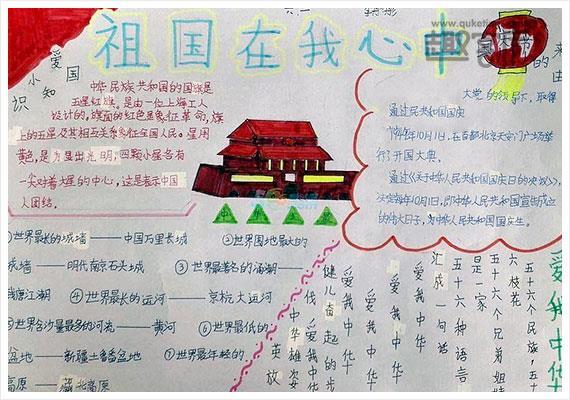 www.quketi
祖国在我心中
六.一
爱国
小知
识
国庆节
的来
中华民族共和国的国旗是
五星红旗。是由一位上海工人
设计的,旗面的红色是象征革命,旗
上的五星及其相互关系象征全国人民。星用
黄色,是为显出光明,四颗小星各有
一尖对着大星的中心,这是表示中国
人团结。
大党的领导下,取得
通过民共和国国庆
1949年10月1日,在首都北京天安门广场举
行了开国大典。
通过《关于中华人民共和国国庆日的决议》,
决定每年10月1日,即中华人民共和国宣告成立
的伟大日子,为中华人民共和国国庆生。
①世界最长的城墙——中国万里长城
②世界围地最大的
城墙——明代南京石头城
③世界最著名的涌潮——
钱塘江潮
④世界最长的运河——京杭大运河
⑤世界含沙量最多的河流——黄河
⑥世界最低的
盆地——新疆土鲁番盆地
⑦世界最年轻的
高原——藏北高原
爱我中华
五十六个民族,五十
六枝花
五十六个兄弟姐妹
是一家
五十六种语言
汇成一句话
爱我中华
爱我中华
爱我中华
健儿奋起的步
伐